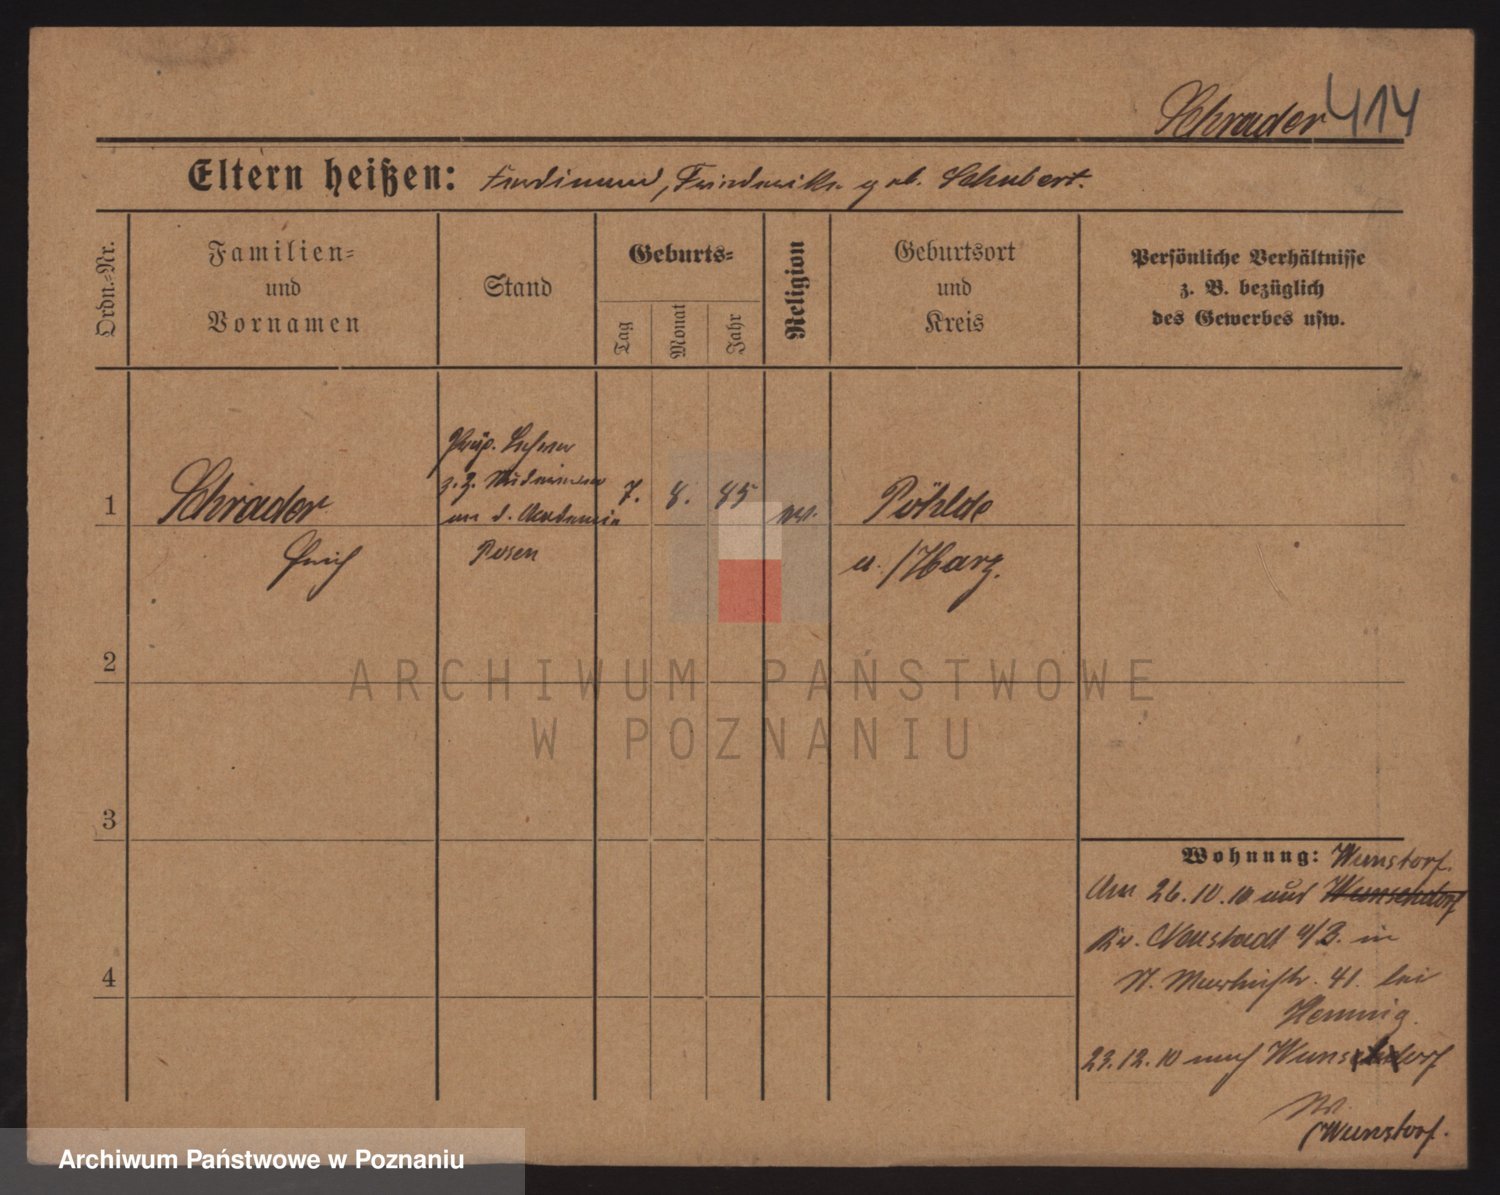 Schrader 414
Eltern heißen: Ferdinand, Friederike geb. Schubert.
Ordn.-Nr.
Familien-
und
Vornamen
Stand
Geburts-
Tag
Monat
Jahr
Religion
Geburtsort
und
Kreis
Persönliche Verhältnisse
z. B. bezüglich
des Gewerbes usw.
1
Schrader
Erich
Präp. Lehrer
z. Z. Studierender
an d. Akademie
Posen
7. 8. 85
ev.
Pöhlde
a. / Harz.
2
3
4
Wohnung: Wunstorf.
Am 26.10.10 aus Wunsendorf
Kr. Neustadt a/B. in
St. Martinstr. 41. bei
Hennig.
23.12.10 nach Wunsdorf
Wunstorf.
ARCHIWUM PAŃSTWOWE
W POZNANIU
Archiwum Państwowe w Poznaniu